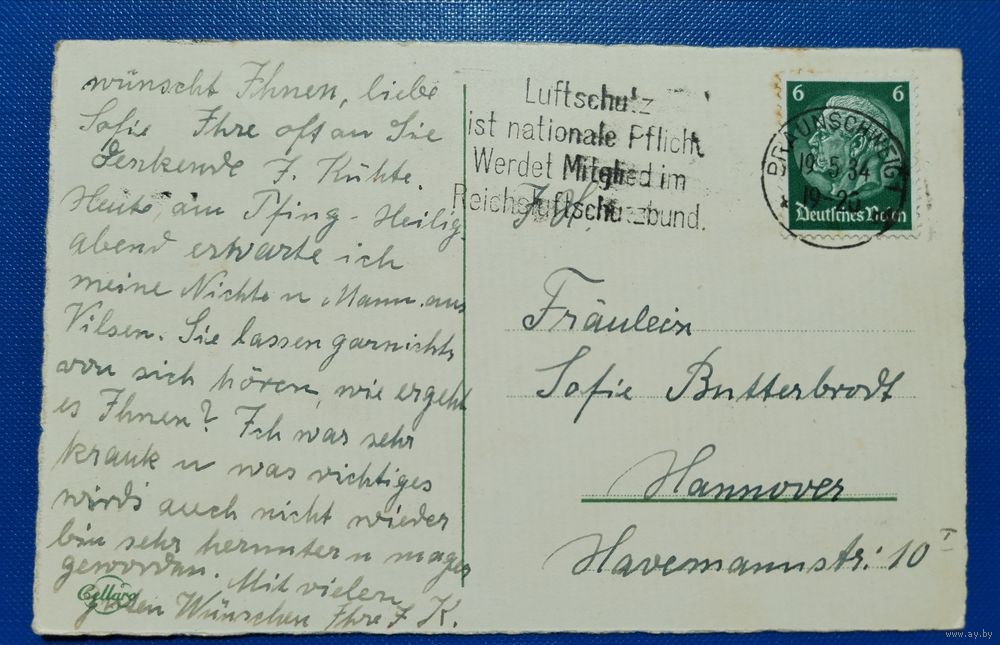 wünscht Ihnen, liebe
Sofie Ihre oft an Sie
denkende J. Kühte.
Heute, am Pfing-Heilig-
abend erwarte ich
meine Nichte u Mann. aus
Vilsen. Sie lassen garnichts
von sich hören, wie ergeht
es Ihnen? Ich war sehr
krank u was richtiges
wirds auch nicht wieder
bin sehr herunter u mager
geworden. Mit vielen
guten Wünschen Ihre J K.
Cellaro
Luftschutz
ist nationale Pflicht
Werdet Mitglied im
Reichsluftschutzbund.
6 6
BRAUNSCHWEIG 1
19.5.34
19-20
Deutsches Reich
Fräulein
Sofie Butterbrodt
Hannover
Havemannstr: 10 I
www.ay.by